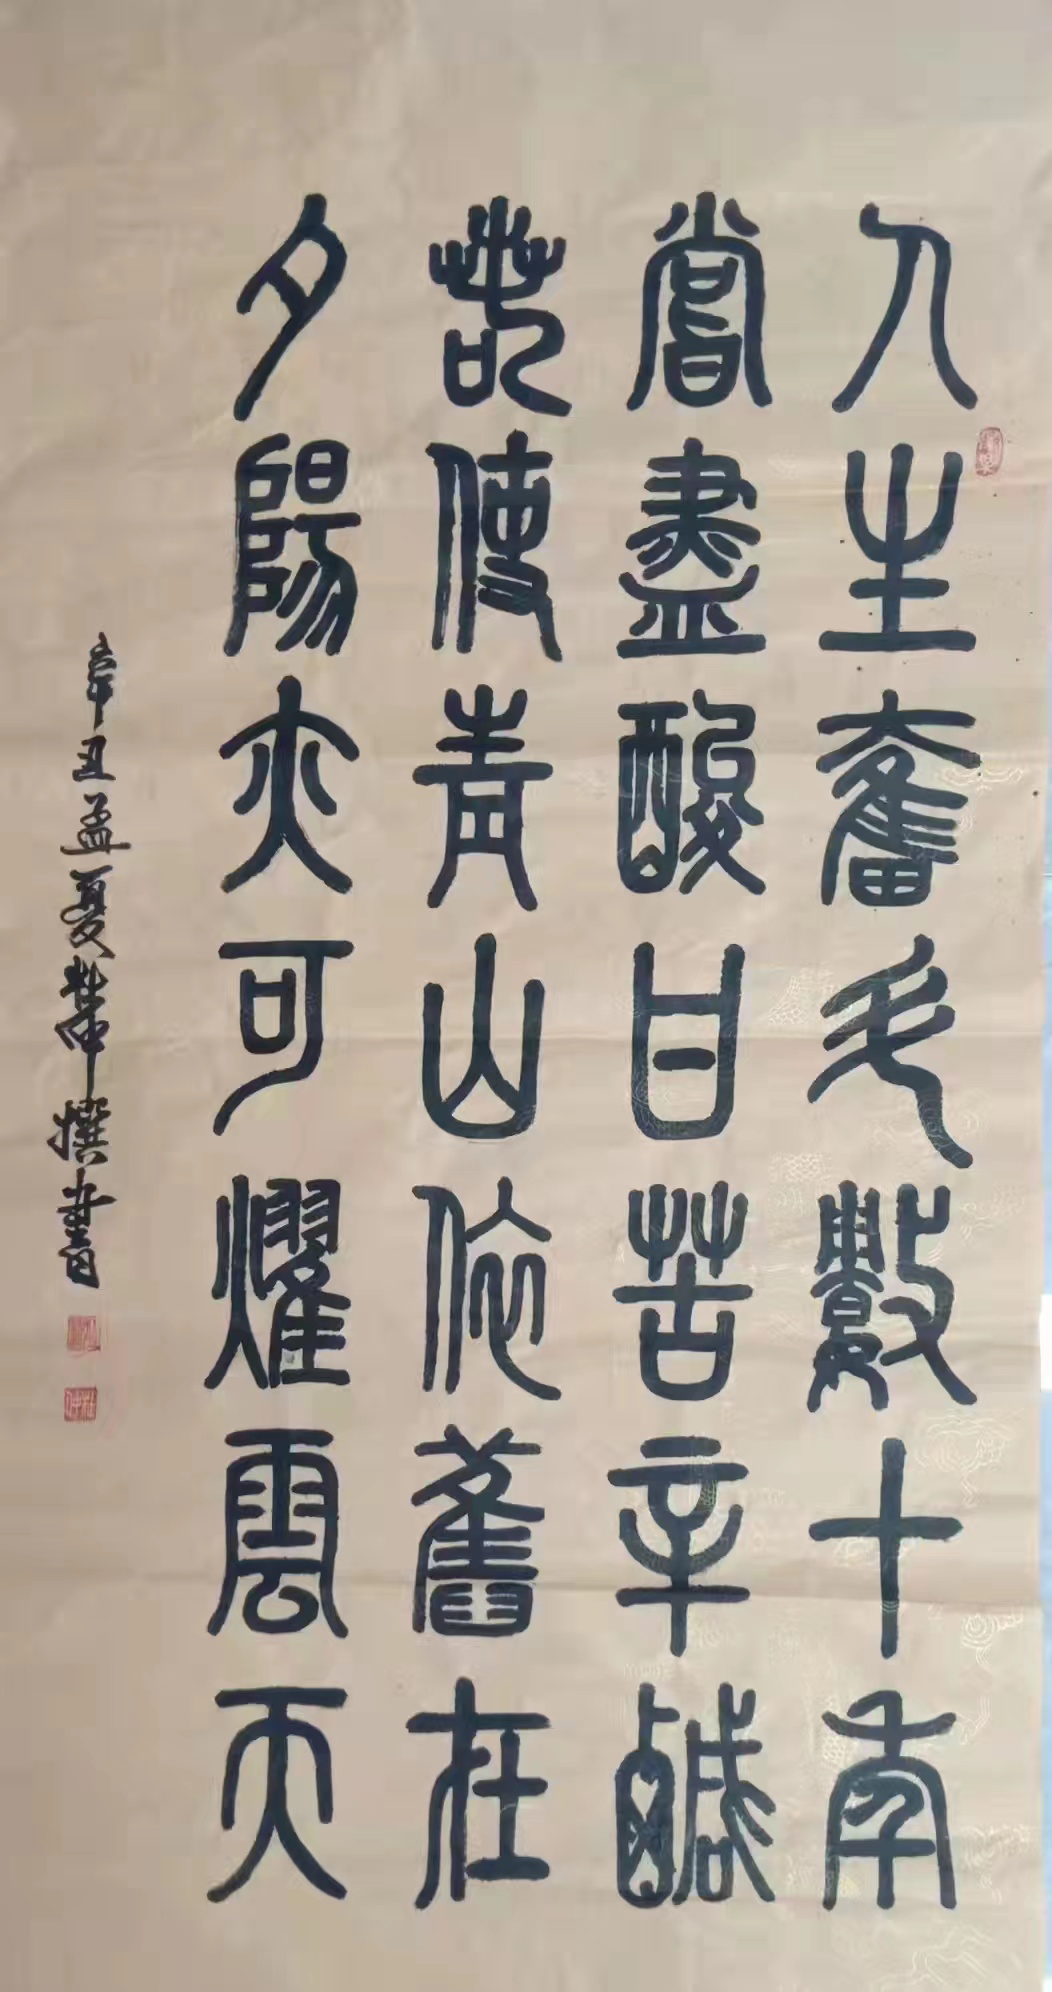 人生奮久數十年
嘗盡酸甘苦辛鹹
若使青山依舊在
夕陽亦可耀雲天
辛丑孟夏 撰書